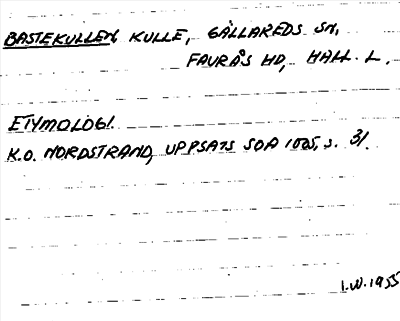 BASTEKULLEN, KULLE, GÄLLAREDS SN,
FAURÅS HD, HALL. L.
ETYMOLOGI.
K.O. NORDSTRAND, UPPSATS SOA 1005, s. 31.
I.W. 1955